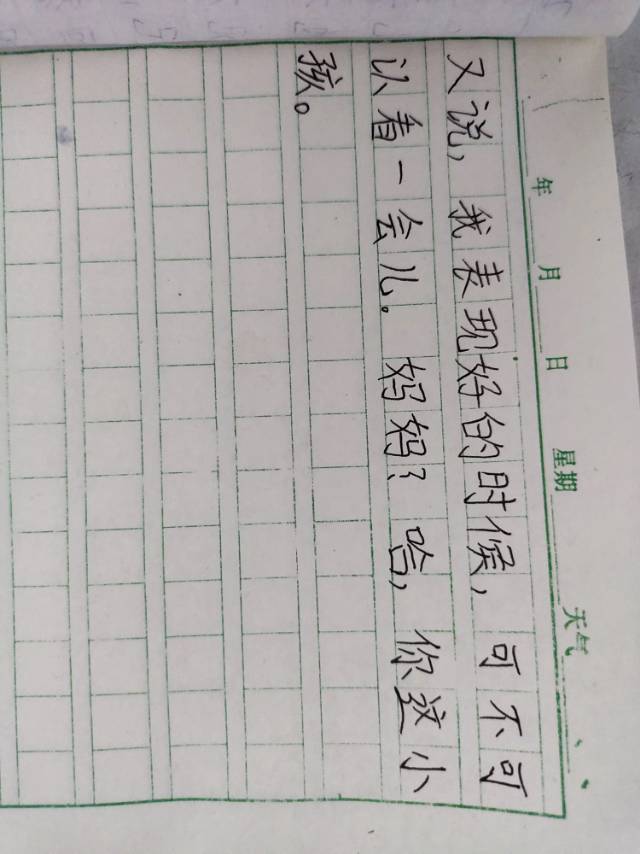 年 月 日 星期 天气
又说,我表现好的时候,可不可
以看一会儿。妈妈?哈,你这小
孩。